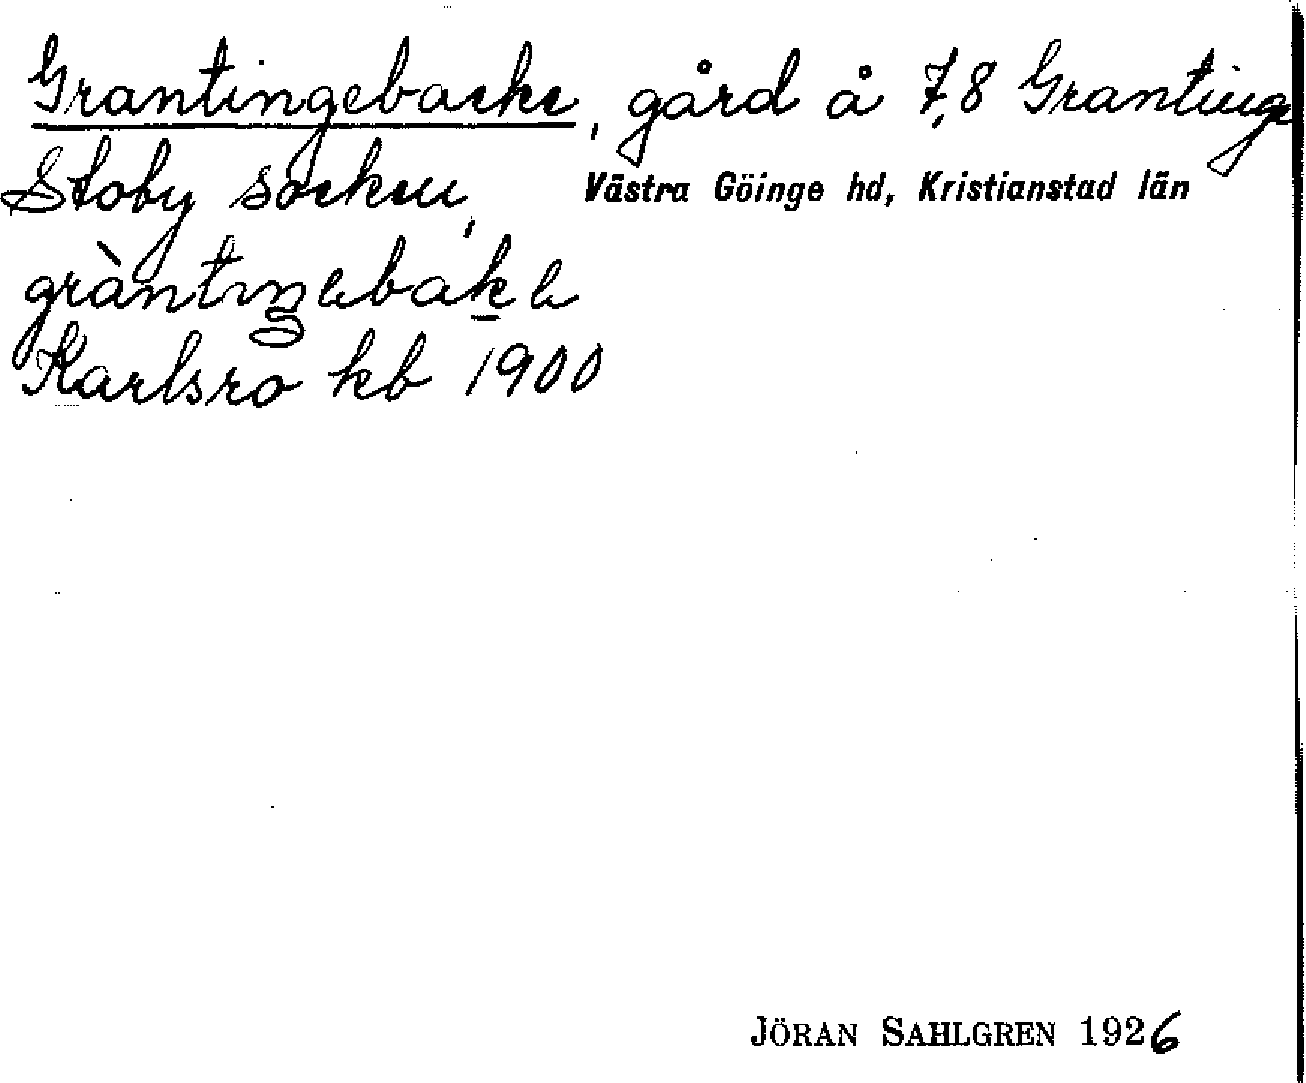 Grantingebacke, gård å 7,8 Grantinge
Stoby socken, Västra Göinge hd, Kristianstad län
gràntıŋəbak̲ə
Karlsro kb 1900
JÖRAN SAHLGREN 1926